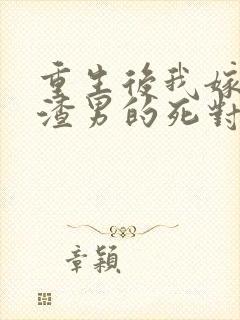 重生後我嫁
渣男的死對
章穎